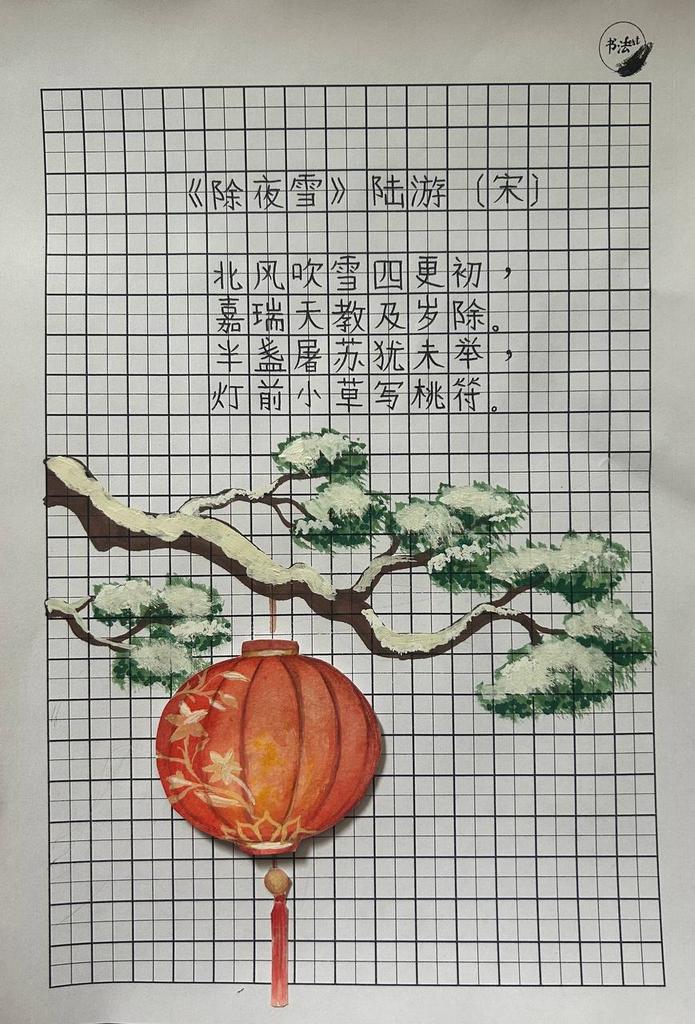 书法est
《除夜雪》陆游〔宋〕
北风吹雪四更初，
嘉瑞天教及岁除。
半盏屠苏犹未举，
灯前小草写桃符。